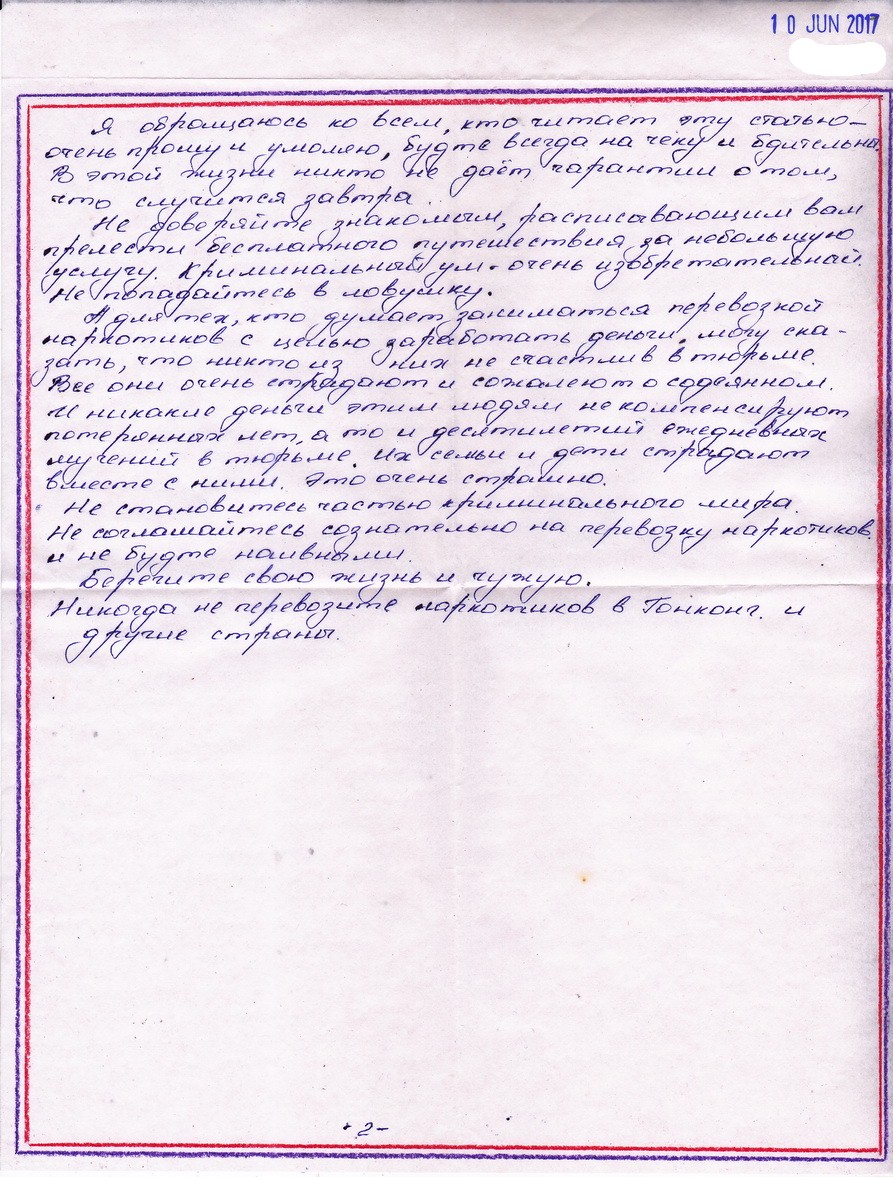 10 JUN 2017
Я обращаюсь ко всем, кто читает эту статью –
очень прошу и умоляю, будте всегда на чеку и бдительны.
В этой жизни никто не даёт гарантии о том,
что случится завтра.
Не доверяйте знакомым, расписывающим вам
прелести бесплатного путешествия за небольшую
услугу. Криминальный ум - очень изобретательный.
Не попадайтесь в ловушку.
А для тех, кто думает заниматься перевозкой
наркотиков с целью заработать деньги, могу ска-
зать, что никто из них не счастлив в тюрьме.
Все они очень страдают и сожалеют о содеянном.
И никакие деньги этим людям не компенсируют
потерянных лет, а то и десятилетий ежедневных
мучений в тюрьме. Их семьи и дети страдают
вместе с ними. Это очень страшно.
Не становитесь частью криминального мира.
Не соглашайтесь сознательно на перевозку наркотиков
и не будте наивными.
Берегите свою жизнь и чужую.
Никогда не перевозите наркотиков в Гонконг. и
другие страны.
-2-